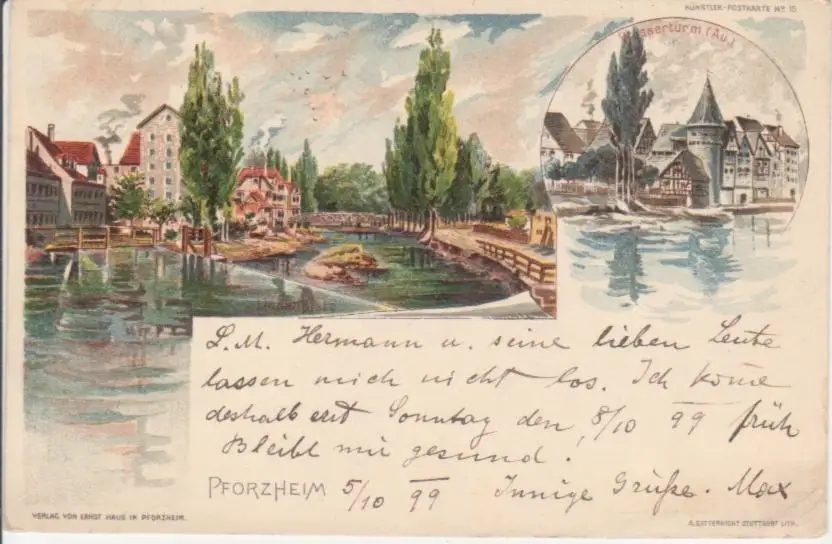 KÜNSTLER-POSTKARTE No 15
Wasserturm (Au.)
Lindenplatz
L. M. Hermann u. seine lieben Leute
lassen mich nicht los. Ich kom̄e
deshalb erst Sonntag den, 8/10 99 früh
Bleibt mir gesund.
PFORZHEIM 5/10 99 Innige Grüße. Max
VERLAG VON ERNST HAUG IN PFORZHEIM.
A. GATTERNICHT STUTTGART LITH.